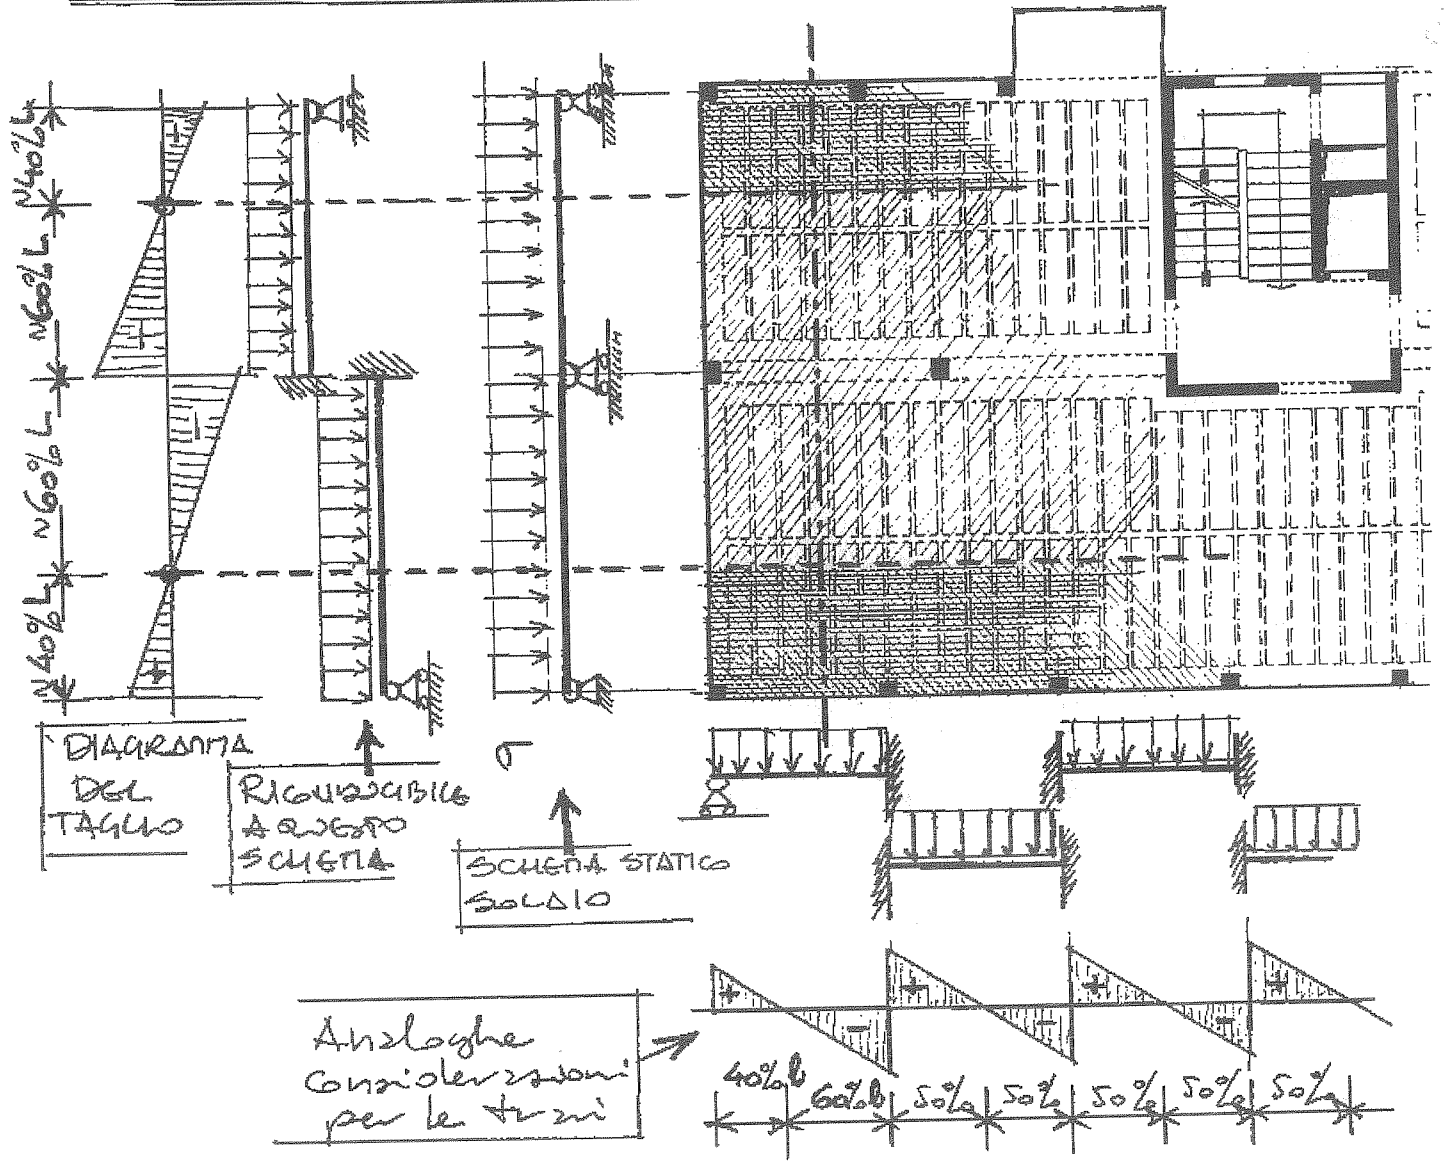 ~40% L
~60% L
~60% L
~40% L
DIAGRAMMA
DEL
TAGLIO
RICONDUCIBILE
A QUESTO
SCHEMA
SCHEMA STATICO
SOLAIO
Analoghe
considerazioni
per le travi
40% l
60% l
50%
50%
50%
50%
50%
+
-
+
-
+
-
+